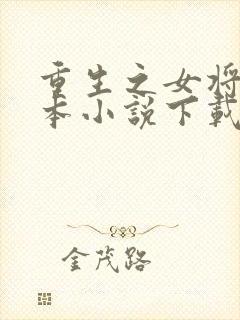 重生之女将
本小说下载
金茂路